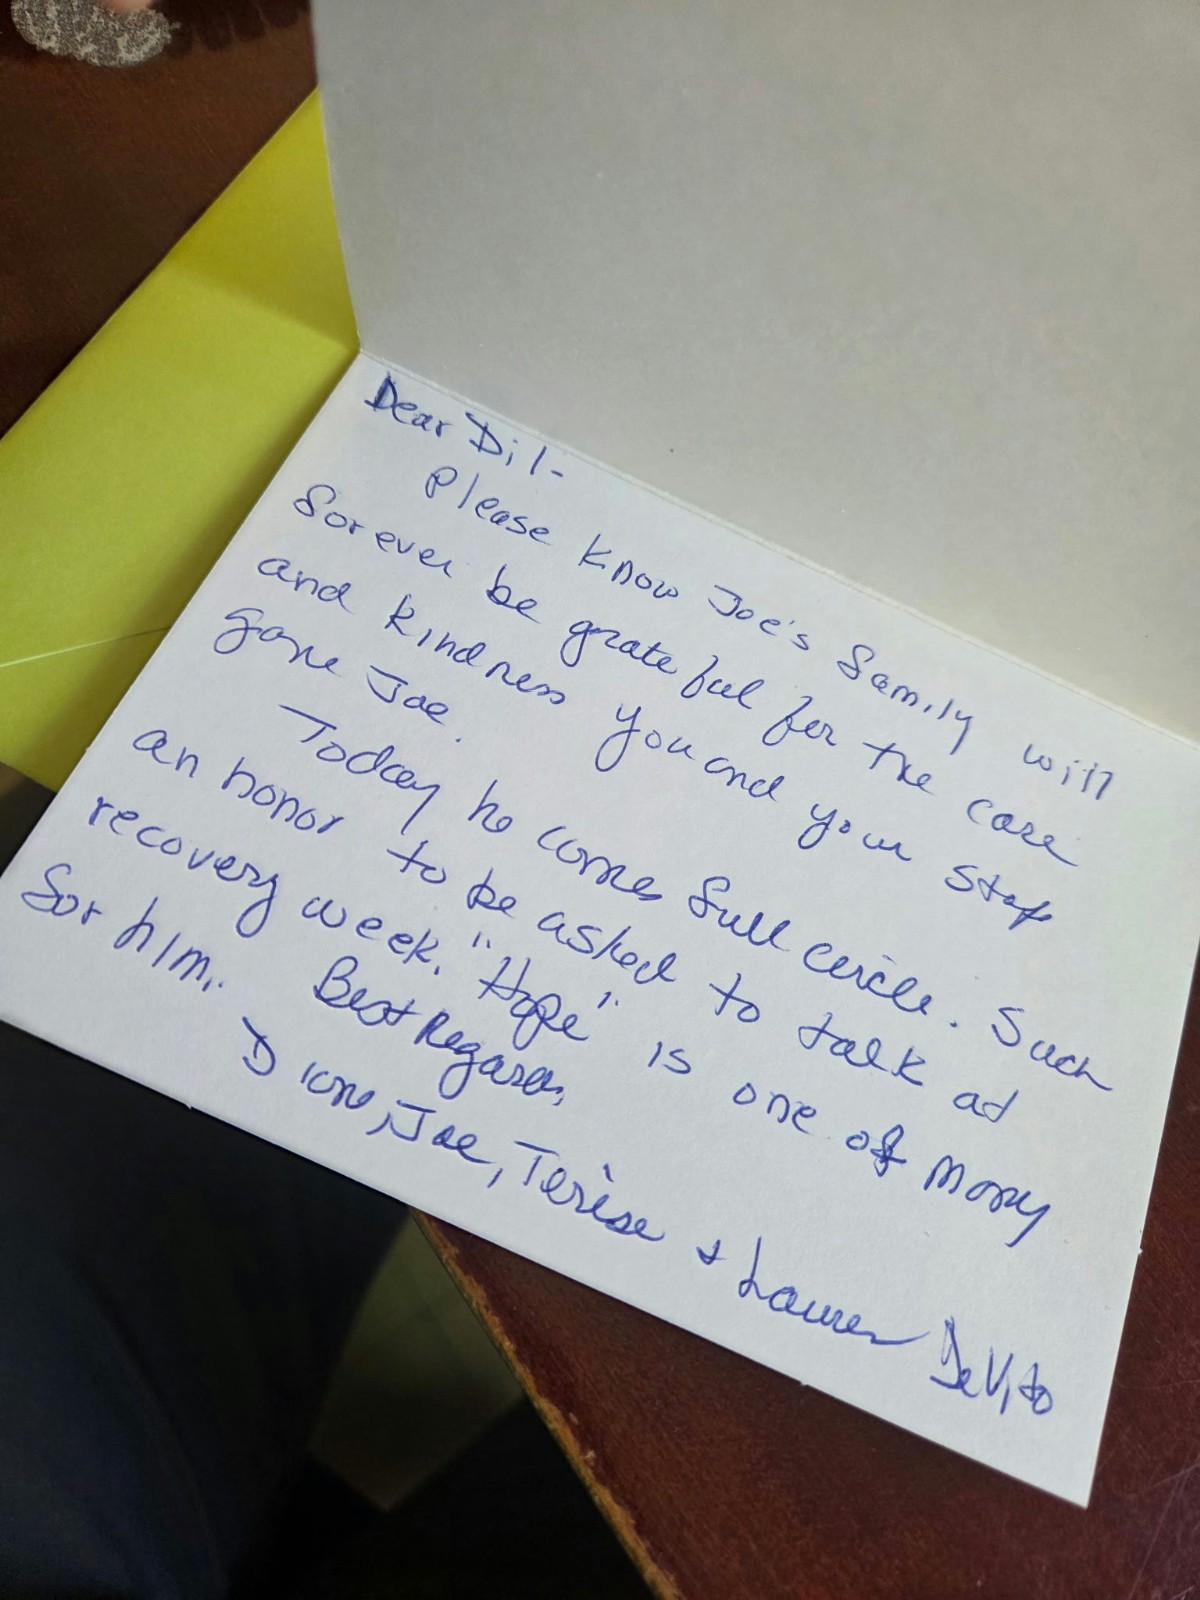 Dear Dil-
Please know Joe's family will
forever be grateful for the care
and kindness you and your staff
gave Joe.
Today he comes full circle. Such
an honor to be asked to talk at
recovery week. "Hope" is one of many
for him.
Best Regards,
Diane, Joe, Terése & Lauren DeVito